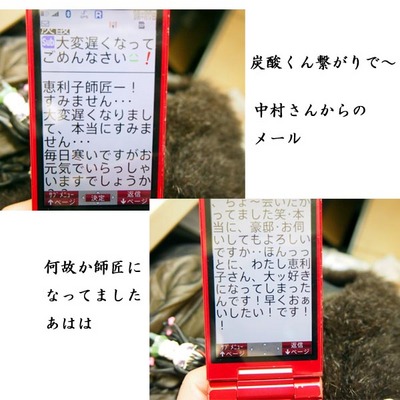 大変遅くなって
ごめんなさい❗
恵利子師匠ー!
すみません・・・
大変遅くなりまし
て、本当にすみま
せん・・・
毎日寒いですがお
元気でいらっしゃ
いますでしょうか
サブメニュー
▲ページ
決定
返信
▼ページ
炭酸くん繋がりで〜
中村さんからの
メール
何故か師匠に
なってました
あはは
ちょ〜会いたか
ってました笑・本
当に、豪邸・お伺
いしてもよろしい
ですか・・ほんっっ
とに、わたし恵利
子さん、大ッ好き
になってしまった
んです!早くおぁ
いしたいです!!
!
サブメニュー
▲ページ
返信
▼ページ